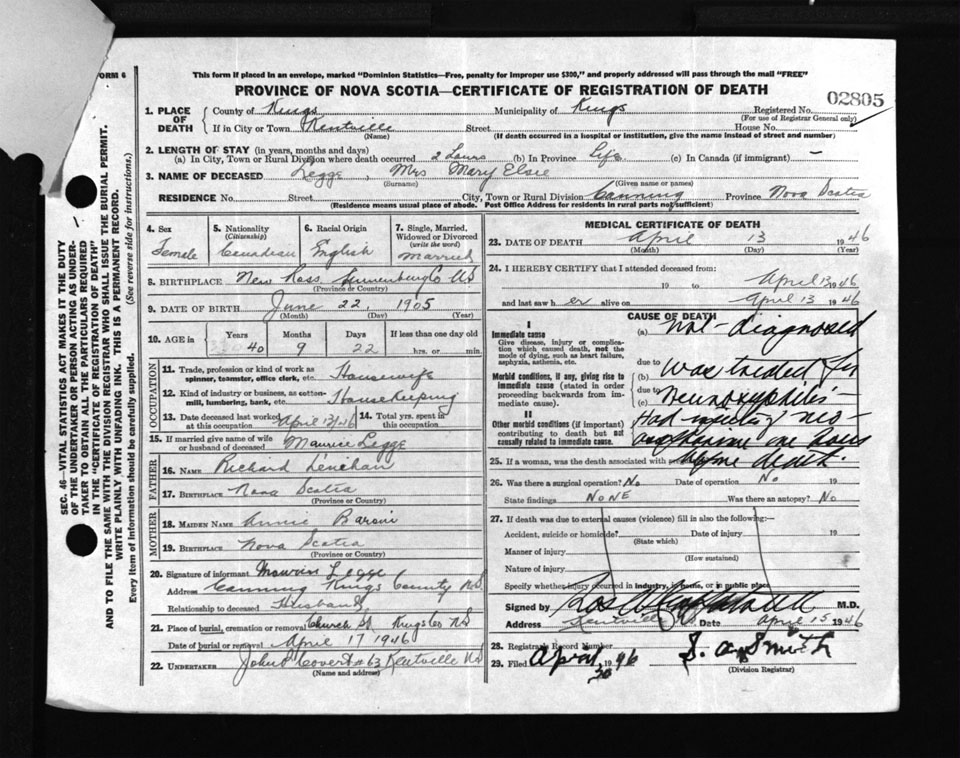 FORM 6
This form if placed in an envelope, marked "Dominion Statistics—Free, penalty for improper use $300," and properly addressed will pass through the mail "FREE"
PROVINCE OF NOVA SCOTIA—CERTIFICATE OF REGISTRATION OF DEATH
02805
1. PLACE OF DEATH
County of Kings Municipality of Kings Registered No.
(For use of Registrar General only)
If in City or Town Kentville Street House No.
(Name) (If death occurred in a hospital or institution, give the name instead of street and number)
2. LENGTH OF STAY (in years, months and days)
(a) In City, Town or Rural Division where death occurred 2 hours (b) In Province Life (c) In Canada (if immigrant) —
3. NAME OF DECEASED Legge, Mrs Mary Elsie
(Surname) (Given name or names)
RESIDENCE No. Street City, Town or Rural Division Canning Province Nova Scotia
(Residence means usual place of abode. Post Office Address for residents in rural parts not sufficient)
4. Sex
Female
5. Nationality
(Citizenship)
Canadian
6. Racial Origin
English
7. Single, Married, Widowed or Divorced
(write the word)
Married
8. BIRTHPLACE New Ross Lunenburg Co NS
(Province or Country)
9. DATE OF BIRTH June 22 1905
(Month) (Day) (Year)
10. AGE in
Years Months Days If less than one day old
40 9 22 hrs. or min.
OCCUPATION
11. Trade, profession or kind of work as spinner, teamster, office clerk, etc. Housewife
12. Kind of industry or business, as cotton-mill, lumbering, bank, etc. Housekeeping
13. Date deceased last worked at this occupation April 13/46
14. Total yrs. spent in this occupation
15. If married give name of wife or husband of deceased Maurice Legge
FATHER
16. NAME Richard Lenehan
17. BIRTHPLACE Nova Scotia
(Province or Country)
MOTHER
18. MAIDEN NAME Annie
19. BIRTHPLACE Nova Scotia
(Province or Country)
20. Signature of informant Maurice Legge
Address Canning Kings County N.S.
Relationship to deceased Husband
21. Place of burial, cremation or removal Church St Kings Co NS
Date of burial or removal April 17 1946
22. UNDERTAKER John Covert #63 Kentville NS
(Name and address)
MEDICAL CERTIFICATE OF DEATH
23. DATE OF DEATH April 13 1946
(Month) (Day) (Year)
24. I HEREBY CERTIFY that I attended deceased from:
19 to April 13 1946
and last saw her alive on April 13 1946
CAUSE OF DEATH
I
Immediate cause
Give disease, injury or complication which caused death, not the mode of dying, such as heart failure, asphyxia, asthenia, etc.
(a) Not-diagnosed
due to
Morbid conditions, if any, giving rise to immediate cause (stated in order proceeding backwards from immediate cause).
(b) Was treated for
due to
(c) Neurosyphilis-
II
Other morbid conditions (if important) contributing to death but not causally related to immediate cause.
Had injection neo
one hour
before death.
25. If a woman, was the death associated with
26. Was there a surgical operation? No Date of operation No 19
State findings NONE Was there an autopsy? No
27. If death was due to external causes (violence) fill in also the following:—
Accident, suicide or homicide? Date of injury 19
(State which)
Manner of injury
(How sustained)
Nature of injury
Specify whether injury occurred in industry, in home, or in public place
Signed by M.D.
Address Kentville N.S. Date April 15 1946
28. Registrar's Record Number
29. Filed April 30 1946 S. A. Smith
(Division Registrar)
SEC. 46—VITAL STATISTICS ACT MAKES IT THE DUTY
OF THE UNDERTAKER OR PERSON ACTING AS UNDERTAKER TO OBTAIN ALL THE PARTICULARS REQUIRED
IN THE "CERTIFICATE OF REGISTRATION OF DEATH"
AND TO FILE THE SAME WITH THE DIVISION REGISTRAR WHO SHALL ISSUE THE BURIAL PERMIT.
WRITE PLAINLY WITH UNFADING INK. THIS IS A PERMANENT RECORD.
Every item of information should be carefully supplied. (See reverse side for instructions.)